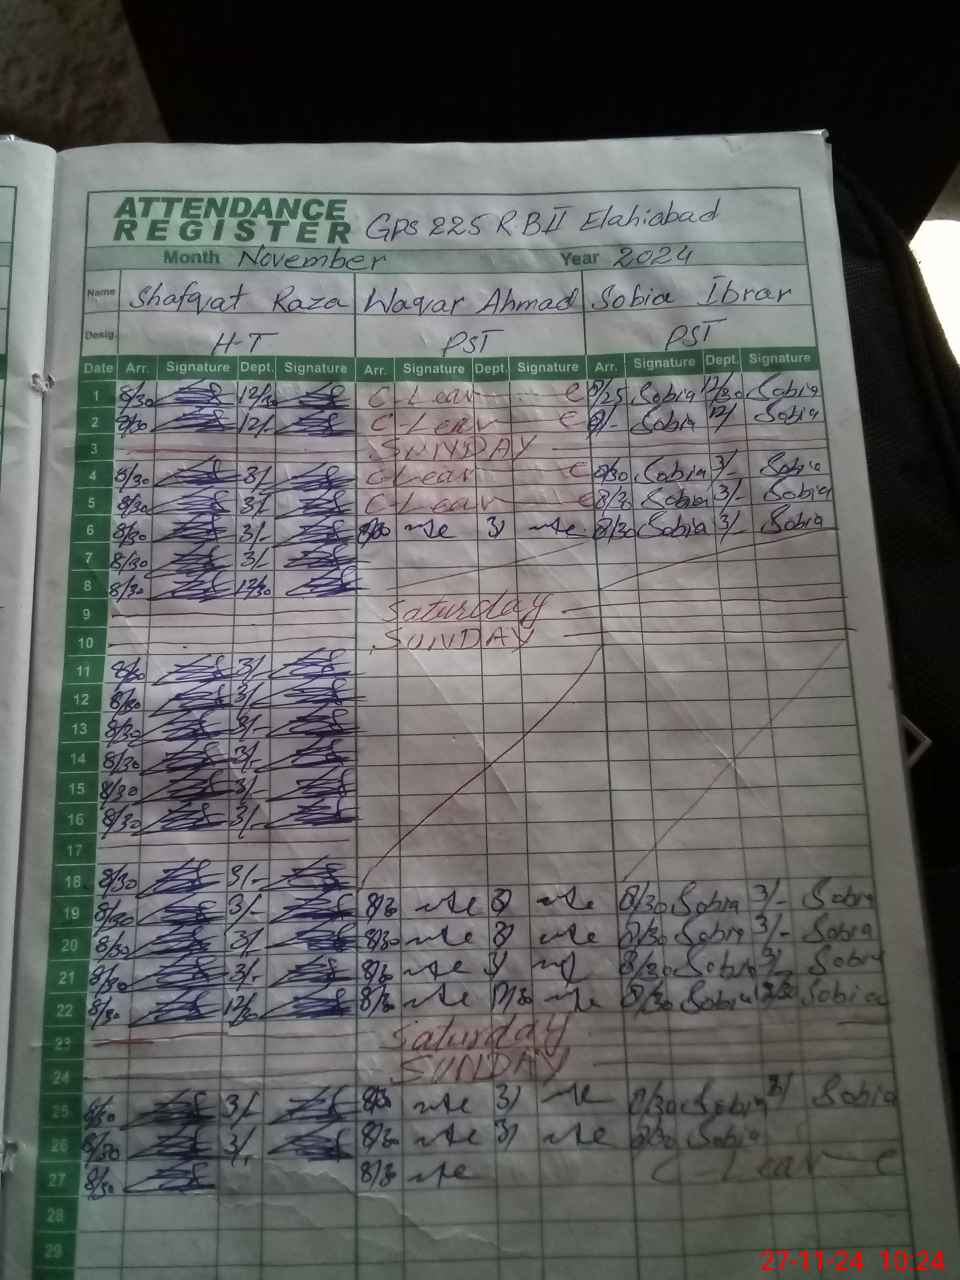 ATTENDANCE
REGISTER GPS 225 R.B II Elahiabad
Month November Year 2024
Name Shafqat Raza Waqar Ahmad Sobia Ibrar
Desig. H-T PST PST
Date Arr. Signature Dept. Signature Arr. Signature Dept. Signature Arr. Signature Dept. Signature
1 8/30 12/30 C-Leav e 8/25 Sobia 12/30 Sobia
2 8/30 12/ C-Leav e 8/- Sobia 12/ Sobia
3 SUNDAY
4 8/30 3/- C-Leav e 8/30 Sobia 3/- Sobia
5 8/30 3/- C-Leav e 8/30 Sobia 3/- Sobia
6 8/30 3/- 8/30 3/ 8/30 Sobia 3/- Sobia
7 8/30 3/-
8 8/30 12/30
9 Saturday
10 SUNDAY
11 8/30 3/-
12 8/30 3/-
13 8/30 3/-
14 8/30 3/-
15 8/30 3/-
16 8/30 3/-
17
18 8/30 3/-
19 8/30 3/- 8/30 3/ 8/30 Sobia 3/- Sobia
20 8/30 3/- 8/30 3/ 8/30 Sobia 3/- Sobia
21 8/30 3/- 8/30 3/ 8/30 Sobia 3/- Sobia
22 8/30 12/30 8/30 12/30 8/30 Sobia 12/30 Sobia
23 Saturday
24 SUNDAY
25 8/30 3/- 8/30 3/ 8/30 Sobia 3/ Sobia
26 8/30 3/- 8/30 3/ 8/30 Sobia
27 8/30 8/30 C-Leav-e
28
29
27-11-24 10:24